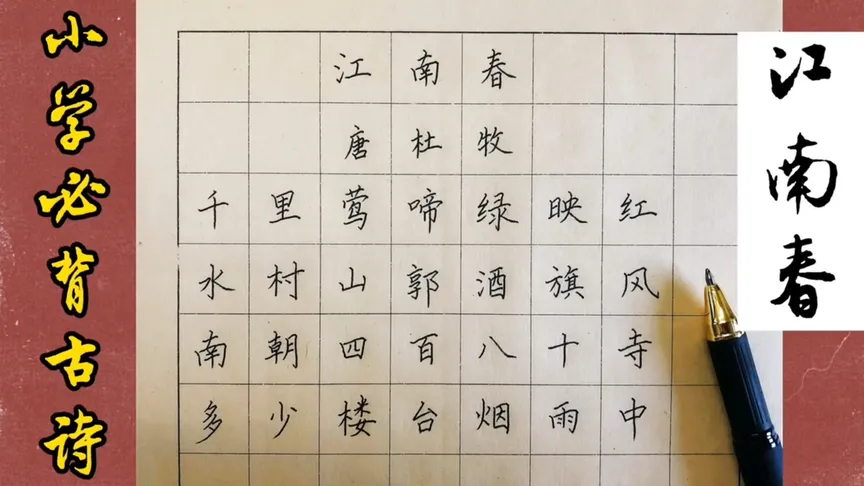 小学必背古诗
江南春
唐杜牧
千里莺啼绿映红
水村山郭酒旗风
南朝四百八十寺
多少楼台烟雨中
江南春